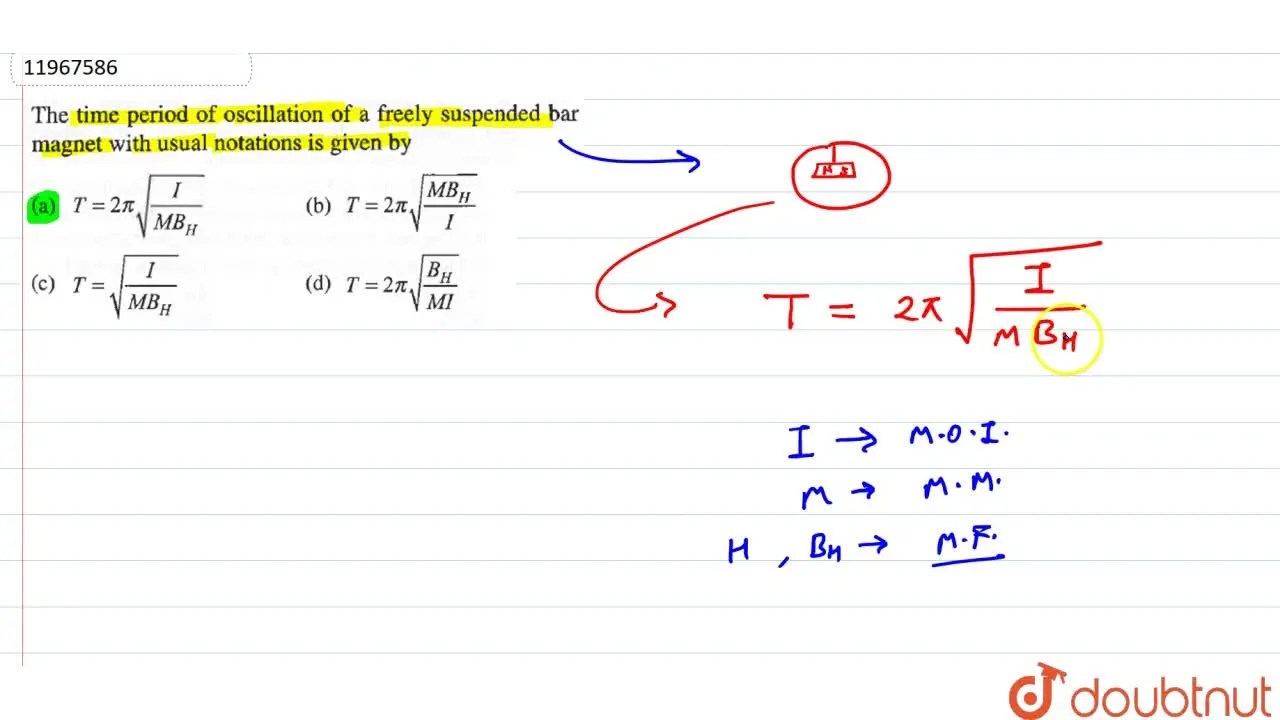 11967586
The time period of oscillation of a freely suspended bar
magnet with usual notations is given by
(a) T = 2π√(I/MB_H) (b) T = 2π√(MB_H/I)
(c) T = √(I/MB_H) (d) T = 2π√(B_H/MI)
T = 2π√(I/M B_H)
I → M.O.I.
M → M.M.
H , B_H → M.F.
doubtnut